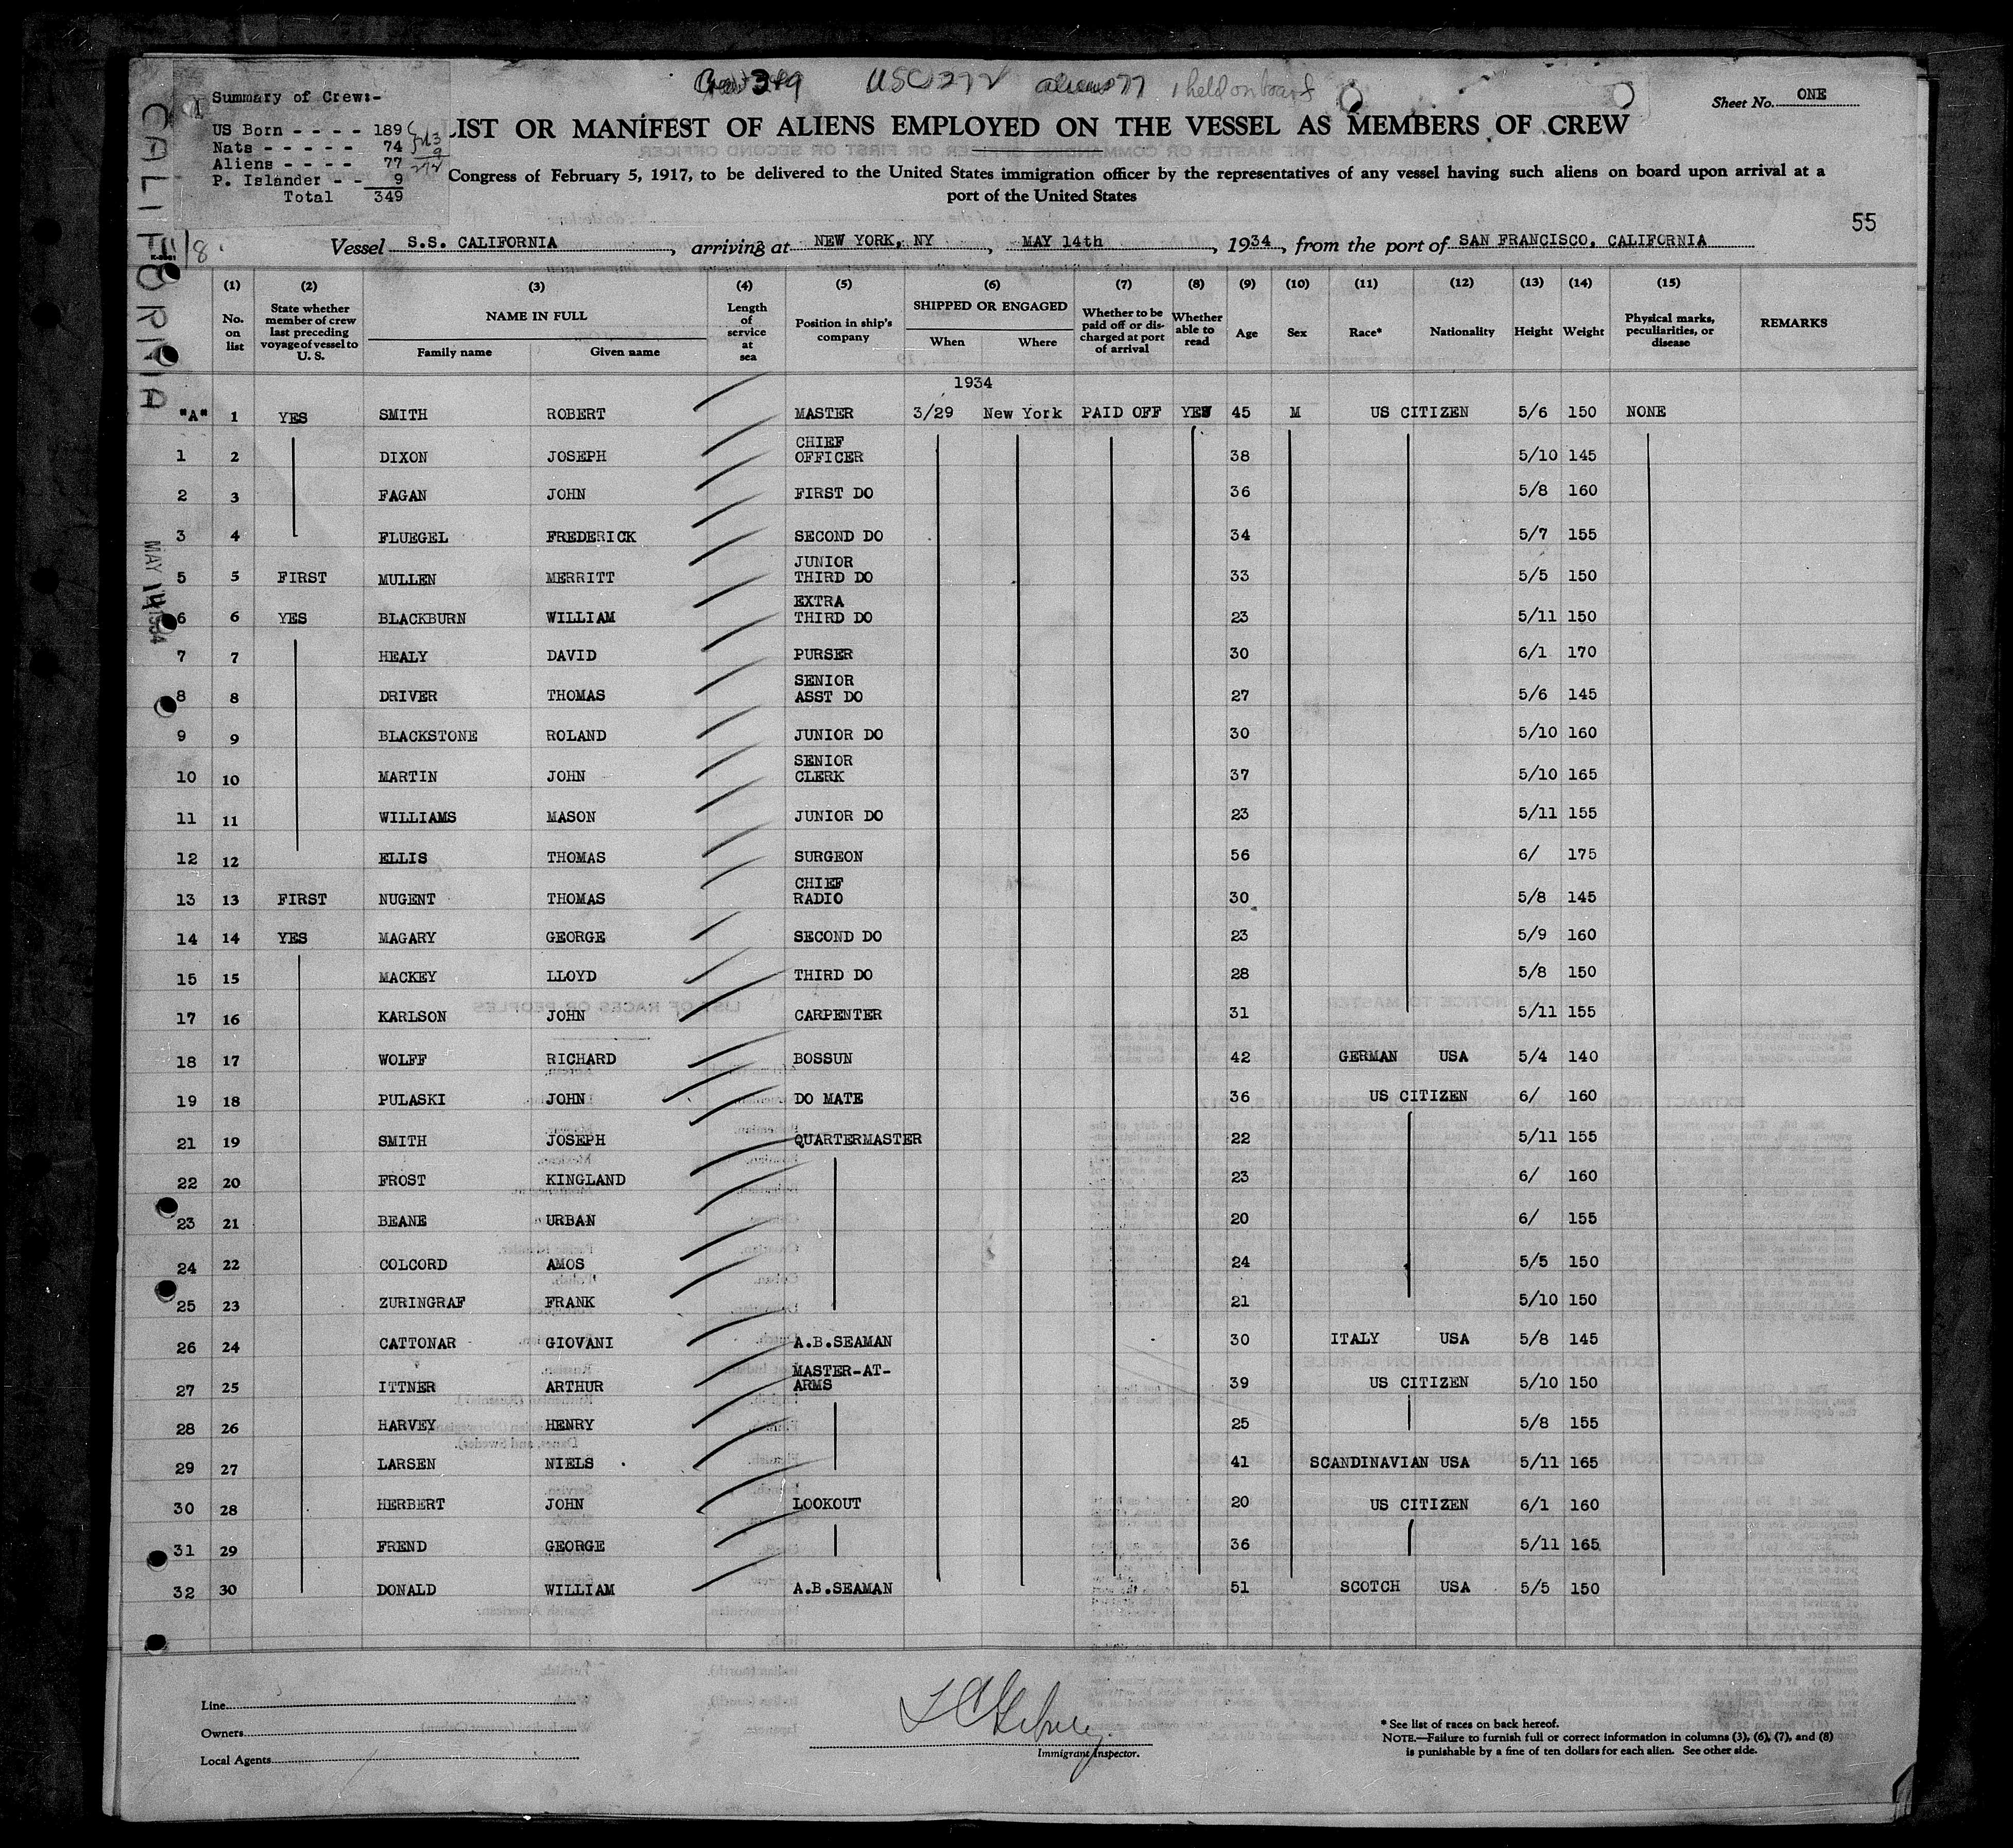 Crew 349 USC 272 aliens 77 1 held on board
Sheet No. ONE
Summary of Crew:-
US Born - - - - 189
Nats - - - - - 74
Aliens - - - - 77
P. Islander - - 9
Total 349
CALIFORNIA
LIST OR MANIFEST OF ALIENS EMPLOYED ON THE VESSEL AS MEMBERS OF CREW
Congress of February 5, 1917, to be delivered to the United States immigration officer by the representatives of any vessel having such aliens on board upon arrival at a
port of the United States
55
Vessel S.S. CALIFORNIA, arriving at NEW YORK, NY, MAY 14th, 1934, from the port of SAN FRANCISCO, CALIFORNIA
(1) (2) (3) (4) (5) (6) (7) (8) (9) (10) (11) (12) (13) (14) (15)
No. on list
State whether member of crew last preceding voyage of vessel to U. S.
NAME IN FULL
Family name Given name
Length of service at sea
Position in ship's company
SHIPPED OR ENGAGED
When Where
Whether to be paid off or discharged at port of arrival
Whether able to read
Age
Sex
Race*
Nationality
Height
Weight
Physical marks, peculiarities, or disease
REMARKS
1934
"A" 1 YES SMITH ROBERT MASTER 3/29 New York PAID OFF YES 45 M US CITIZEN 5/6 150 NONE
1 2 DIXON JOSEPH CHIEF OFFICER 38 5/10 145
2 3 FAGAN JOHN FIRST DO 36 5/8 160
3 4 FLUEGEL FREDERICK SECOND DO 34 5/7 155
5 5 FIRST MULLEN MERRITT JUNIOR THIRD DO 33 5/5 150
6 6 YES BLACKBURN WILLIAM EXTRA THIRD DO 23 5/11 150
7 7 HEALY DAVID PURSER 30 6/1 170
8 8 DRIVER THOMAS SENIOR ASST DO 27 5/6 145
9 9 BLACKSTONE ROLAND JUNIOR DO 30 5/10 160
10 10 MARTIN JOHN SENIOR CLERK 37 5/10 165
11 11 WILLIAMS MASON JUNIOR DO 23 5/11 155
12 12 ELLIS THOMAS SURGEON 56 6/ 175
13 13 FIRST NUGENT THOMAS CHIEF RADIO 30 5/8 145
14 14 YES MAGARY GEORGE SECOND DO 23 5/9 160
15 15 MACKEY LLOYD THIRD DO 28 5/8 150
17 16 KARLSON JOHN CARPENTER 31 5/11 155
18 17 WOLFF RICHARD BOSSUN 42 GERMAN USA 5/4 140
19 18 PULASKI JOHN DO MATE 36 US CITIZEN 6/ 160
21 19 SMITH JOSEPH QUARTERMASTER 22 5/11 155
22 20 FROST KINGLAND 23 6/ 160
23 21 BEANE URBAN 20 6/ 155
24 22 COLCORD AMOS 24 5/5 150
25 23 ZURINGRAF FRANK 21 5/10 150
26 24 CATTONAR GIOVANI A.B.SEAMAN 30 ITALY USA 5/8 145
27 25 ITTNER ARTHUR MASTER-AT-ARMS 39 US CITIZEN 5/10 150
28 26 HARVEY HENRY 25 5/8 155
29 27 LARSEN NIELS 41 SCANDINAVIAN USA 5/11 165
30 28 HERBERT JOHN LOOKOUT 20 US CITIZEN 6/1 160
31 29 FREND GEORGE 36 5/11 165
32 30 DONALD WILLIAM A.B.SEAMAN 51 SCOTCH USA 5/5 150
MAY 14 1934
Line
Owners
Local Agents
Immigrant Inspector.
* See list of races on back hereof.
NOTE.—Failure to furnish full or correct information in columns (3), (6), (7), and (8)
is punishable by a fine of ten dollars for each alien. See other side.